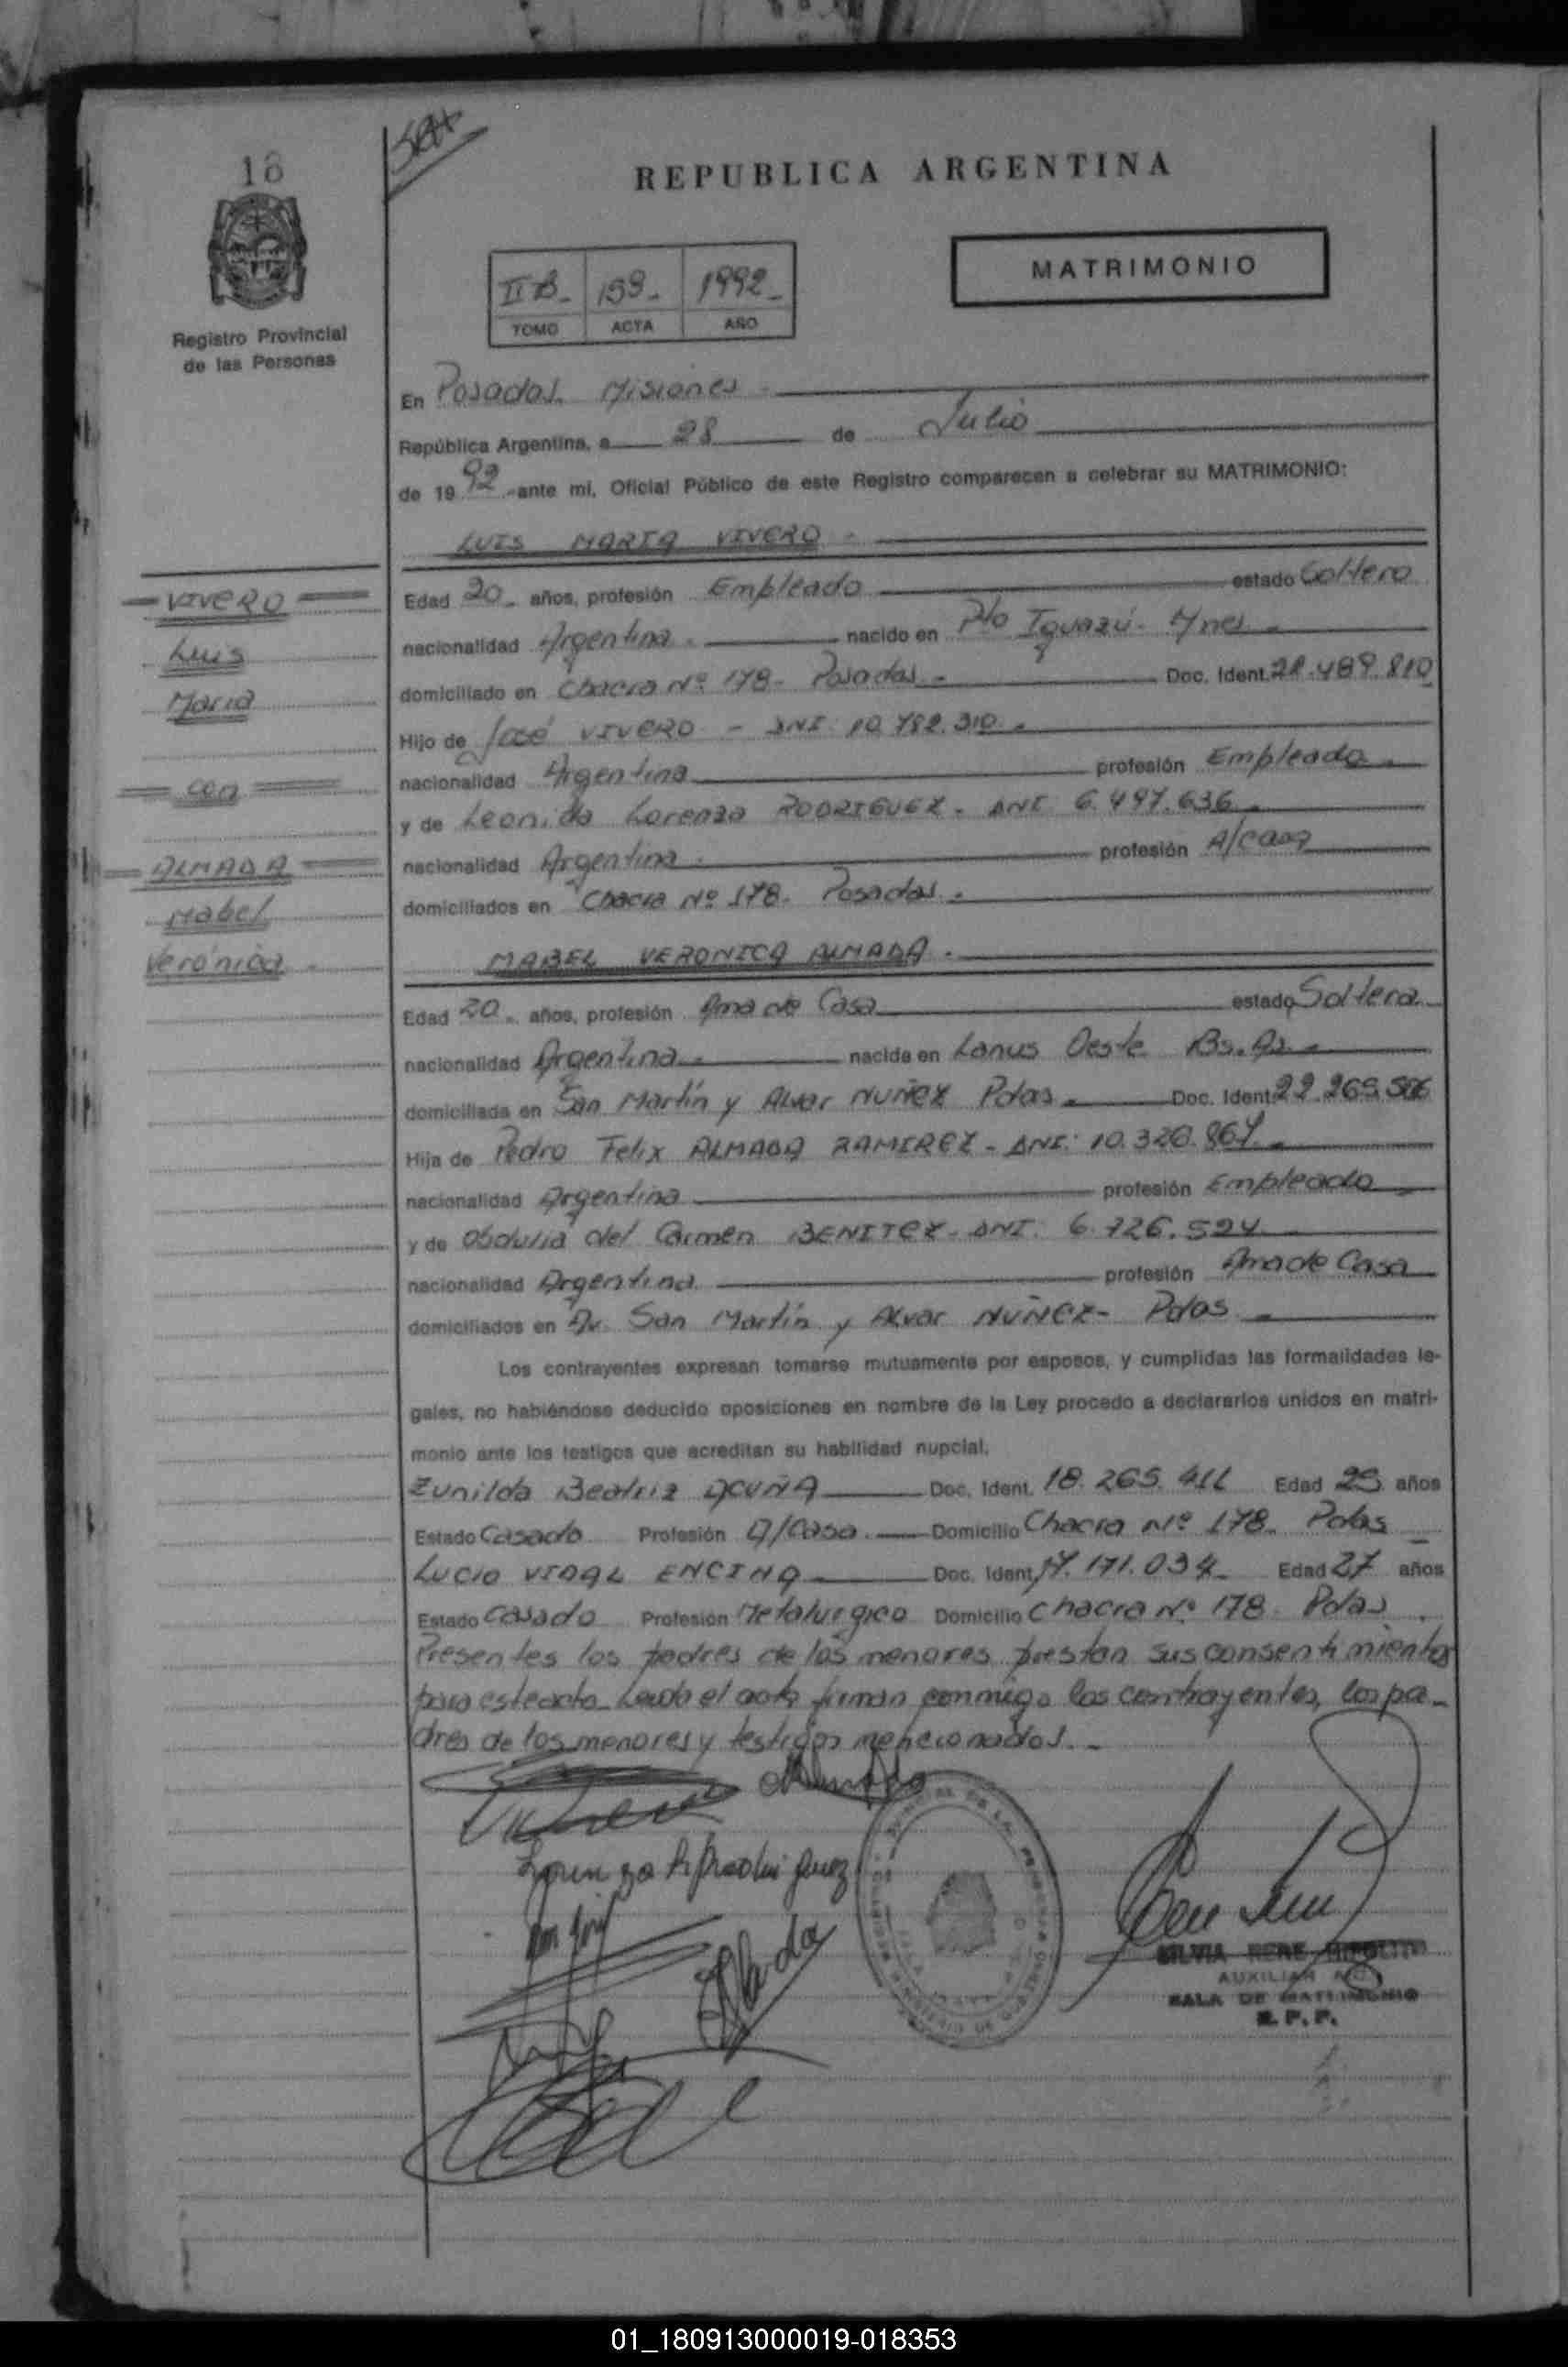 18
REPUBLICA ARGENTINA
MATRIMONIO
II B- 159- 1992-
TOMO ACTA AÑO
Registro Provincial
de las Personas
En Posadas Misiones
República Argentina, a 28 de Julio
de 1992 -ante mi, Oficial Público de este Registro comparecen a celebrar su MATRIMONIO:
LUIS MARIA VIVERO
VIVERO
Luis
Maria
con
ALMADA
Mabel
Verónica
Edad 20 años, profesión Empleado estado Soltero
nacionalidad Argentina nacido en Pto Iguazú - Mnes
domiciliado en Chacra Nº 178 - Posadas - Doc. Ident. 22.489.810
Hijo de José VIVERO - DNI 10.782.310
nacionalidad Argentina profesión Empleado
y de Leonida Lorenza RODRIGUEZ - DNI 6.497.636
nacionalidad Argentina profesión A/casa
domiciliados en Chacra Nº 178. Posadas.
MABEL VERONICA ALMADA.
Edad 20 años, profesión Ama de Casa estado Soltera
nacionalidad Argentina nacida en Lanus Oeste Bs. As.
domiciliada en San Martín y Alvar NUÑEZ Pdas. Doc. Ident. 22.269.506
Hija de Pedro Felix ALMADA RAMIREZ - DNI: 10.326.867
nacionalidad Argentina profesión Empleado
y de Obdulia del Carmen BENITEZ - DNI. 6.726.524
nacionalidad Argentina profesión Ama de Casa
domiciliados en Av. San Martín y Alvar NUÑEZ - Pdas
Los contrayentes expresan tomarse mutuamente por esposos, y cumplidas las formalidades le-
gales, no habiéndose deducido oposiciones en nombre de la Ley procedo a declararlos unidos en matri-
monio ante los testigos que acreditan su habilidad nupcial.
Zunilda Beatriz ACUÑA Doc. Ident. 18.265.411 Edad 25 años
Estado Casada Profesión A/Casa. Domicilio Chacra Nº 178. Pdas
Lucio VIDAL ENCINA Doc. Ident. 17.171.034 Edad 27 años
Estado Casado Profesión Metalurgico Domicilio Chacra Nº 178 Pdas
Presentes los padres de los menores prestan sus consentimientos
para este acto. Leida el acta firman conmigo los contrayentes, los pa-
dres de los menores y testigos mencionados.-
SILVIA RENE HIPOLITO
AUXILIAR
SALA DE MATRIMONIO
R. P. P.
01_180913000019-018353